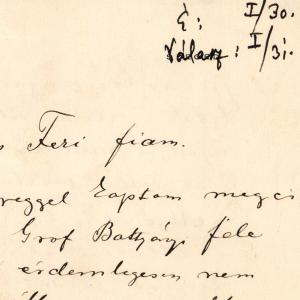 É: I/30.
Válasz: I/31.
s Feri fiam.
reggel Kaptam meg ci
Gróf Batthyáyi féle
érdemlegesen nem